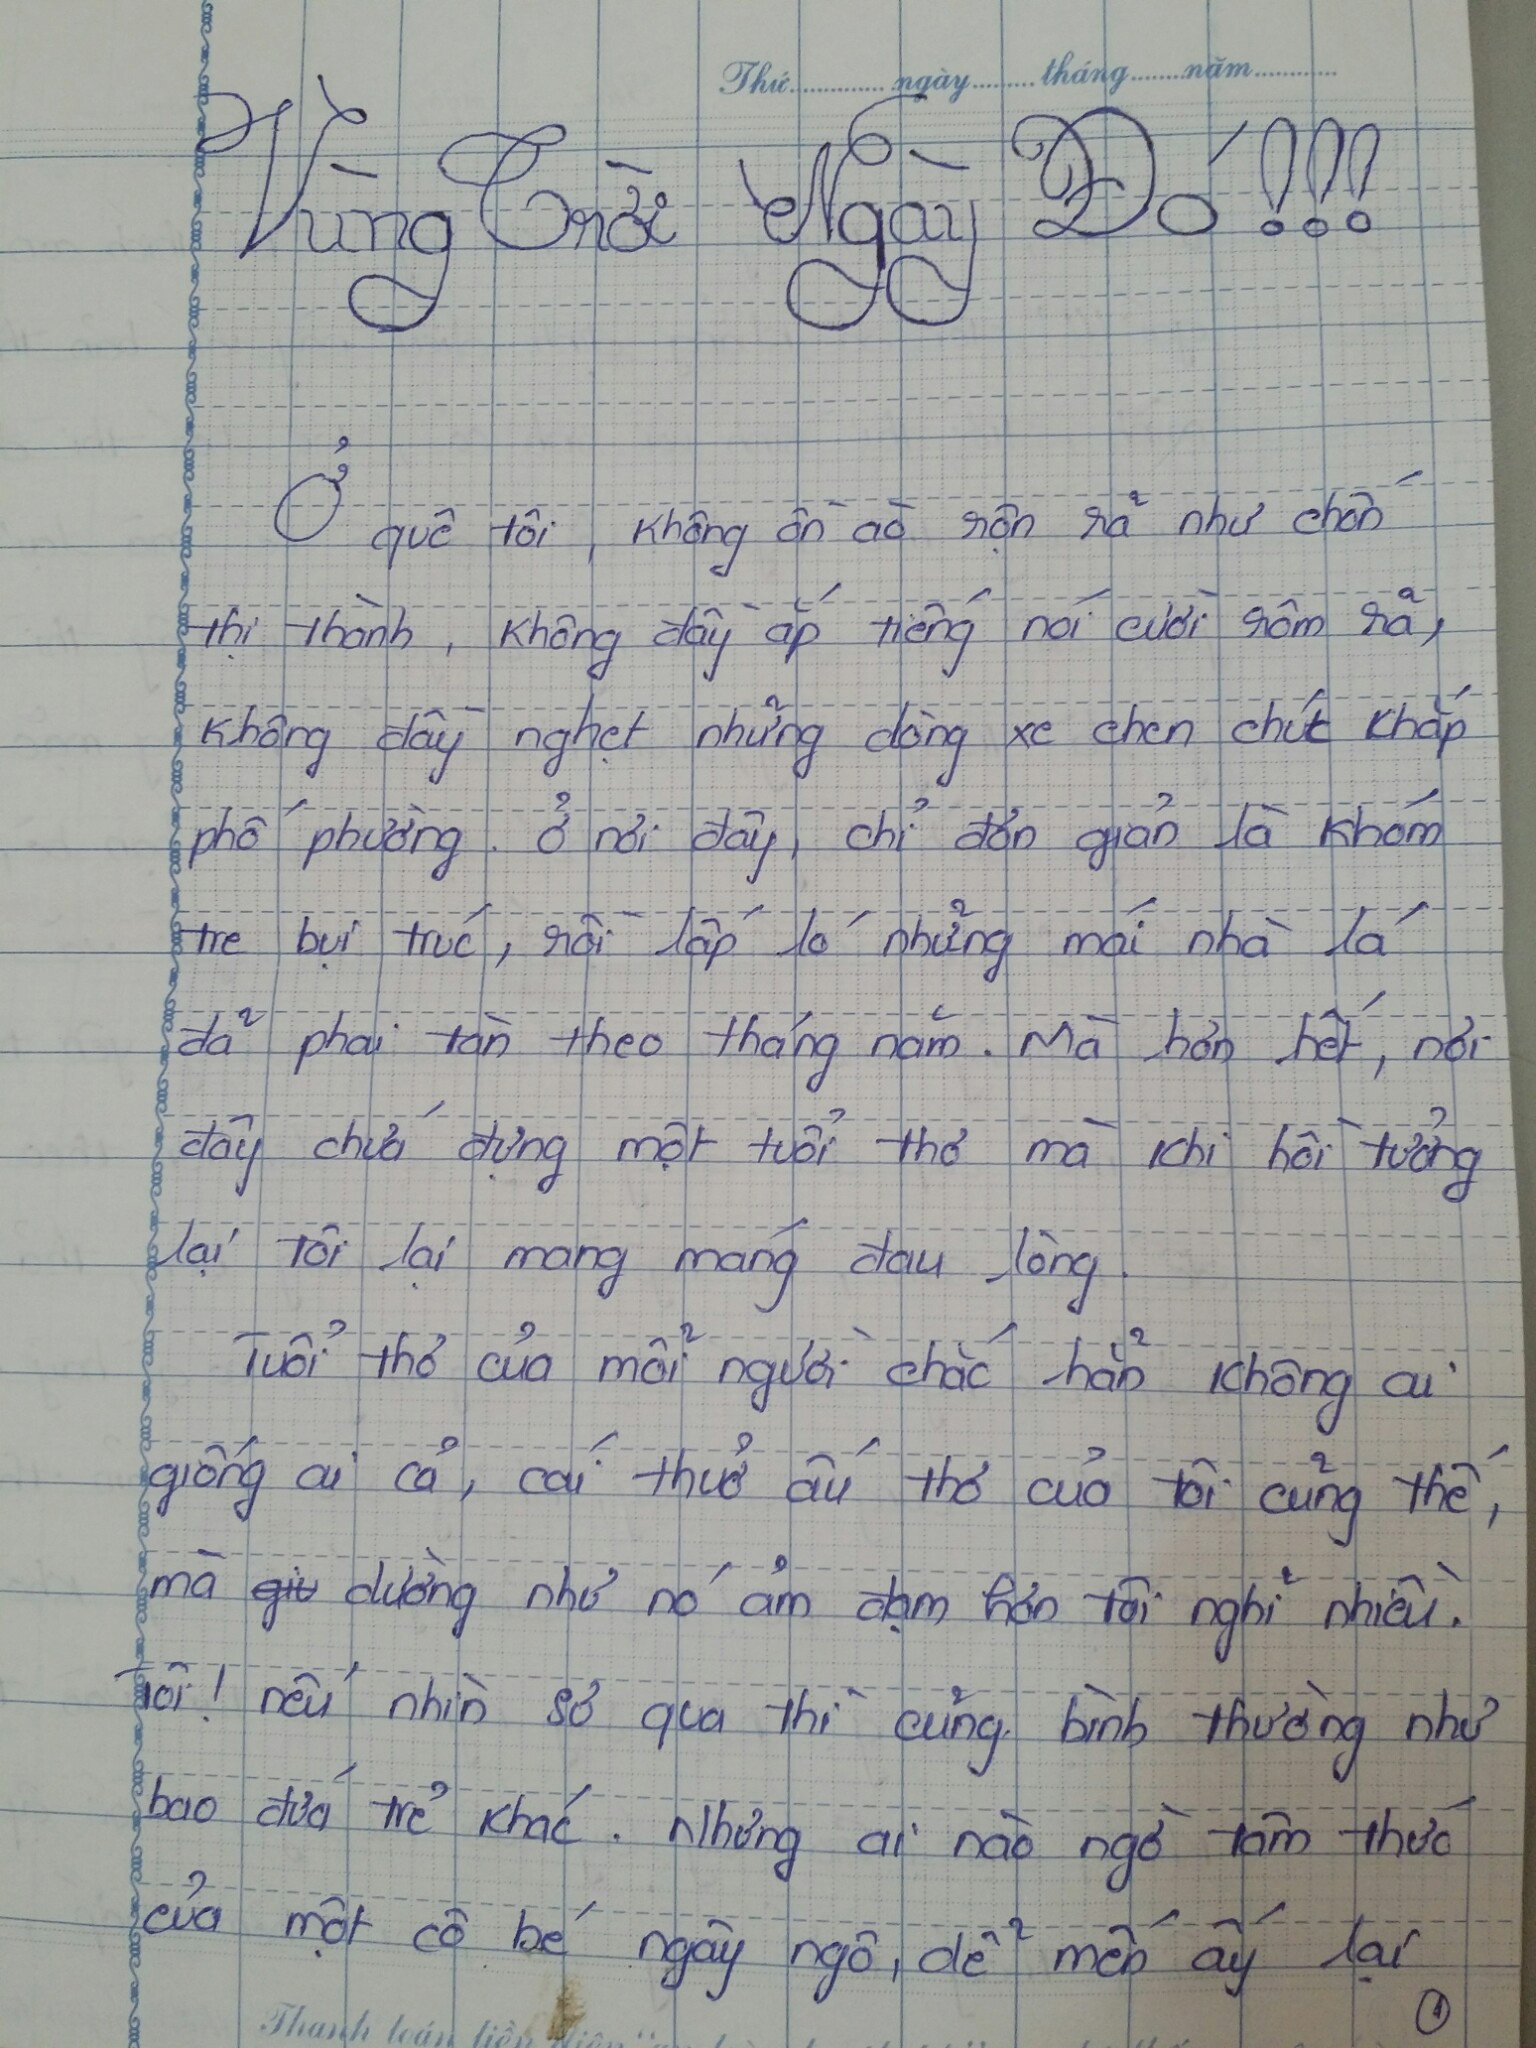 Thứ............ ngày........ tháng.......năm...........
Vùng Trời Ngày Đó !!!
Ở quê tôi, không ồn ào rộn rả như chốn
thị thành, không đầy ắp tiếng nói cười rôm rả,
không đầy nghẹt những dòng xe chen chút khắp
phố phường. ở nơi đây, chỉ đơn giản là khóm
tre bụi trúc, rồi lấp ló những mái nhà lá
đã phai tàn theo tháng năm. Mà hơn hết, nơi
đây chứa đựng một tuổi thơ mà khi hồi tưởng
lại tôi lại mang máng đau lòng.
Tuổi thơ của mỗi người chắc hẳn không ai
giống ai cả, cái thuở ấu thơ của tôi cũng thế,
mà giư dường như nó ảm đạm hơn tôi nghĩ nhiều.
Tôi! nếu nhìn sơ qua thì cũng bình thường như
bao đứa trẻ khác. Nhưng ai nào ngờ tâm thức
của một cô bé ngây ngô, dể mến ấy lại
1
Thanh toán tiền điện